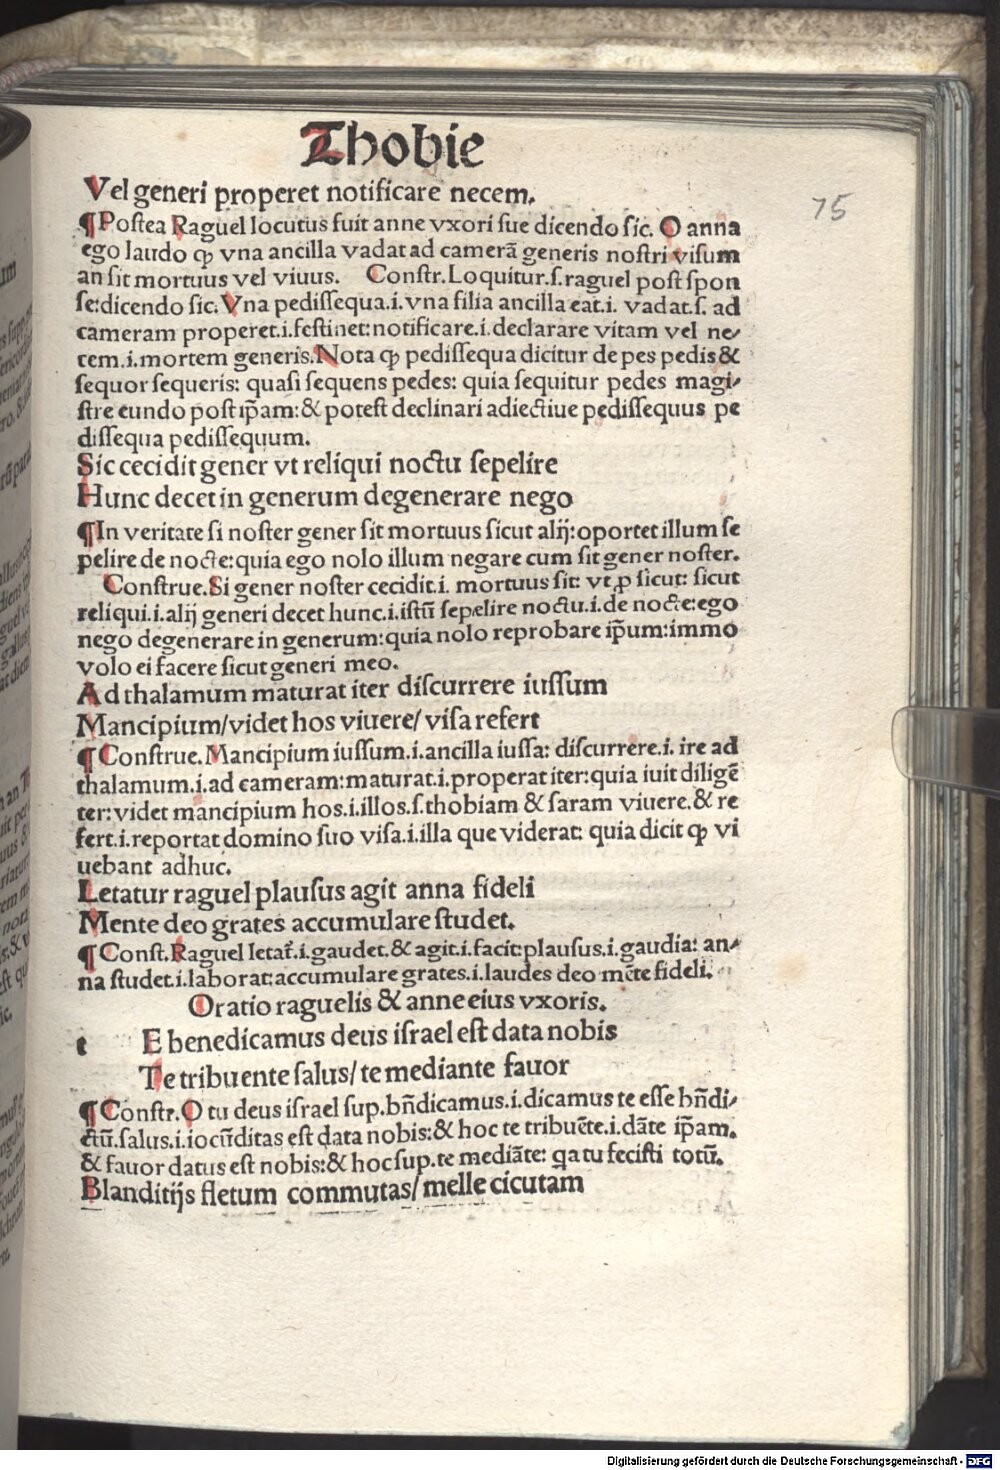 Thobie
75
Vel generi properet notificare necem.
¶ Postea Raguel locutus fuit anne vxori sue dicendo sic. O anna
ego laudo ꝙ vna ancilla vadat ad camerã generis nostri visum
an sit mortuus vel viuus. Constr. Loquitur.s.raguel post spon
se:dicendo sic. Vna pedissequa.i.vna filia ancilla eat.i. vadat.s. ad
cameram properet.i.festinet:notificare.i.declarare vitam vel ne/
cem.i.mortem generis. Nota ꝙ pedissequa dicitur de pes pedis &
sequor sequeris: quasi sequens pedes: quia sequitur pedes magi/
stre eundo post ip̃am:& potest declinari adiectiue pedissequus pe
dissequa pedissequum.
Sic cecidit gener vt reliqui noctu sepelire
Hunc decet in generum degenerare nego
¶ In veritate si noster gener sit mortuus sicut alij:oportet illum se
pelire de nocte:quia ego nolo illum negare cum sit gener noster.
Construe. Si gener noster cecidit.i. mortuus sit: vt ꝓ sicut: sicut
reliqui.i.alij generi decet hunc.i.istũ sepelire noctu.i.de nocte:ego
nego degenerare in generum:quia nolo reprobare ip̃um:immo
volo ei facere sicut generi meo.
Ad thalamum maturat iter discurrere iussum
Mancipium/videt hos viuere/ visa refert
¶ Construe. Mancipium iussum.i.ancilla iussa: discurrere.i. ire ad
thalamum.i.ad cameram:maturat.i.properat iter:quia iuit diligẽ
ter:videt mancipium hos.i.illos.s.thobiam & saram viuere.& re
fert.i.reportat domino suo visa.i.illa que viderat: quia dicit ꝙ vi
uebant adhuc.
Letatur raguel plausus agit anna fideli
Mente deo grates accumulare studet.
¶ Const. Raguel letat᷑.i.gaudet.& agit.i.facit:plausus.i.gaudia: an/
na studet.i.laborat:accumulare grates.i.laudes deo mẽte fideli.
Oratio raguelis & anne eius vxoris.
t E benedicamus deus israel est data nobis
Te tribuente salus/ te mediante fauor
¶ Constr. O tu deus israel sup.bñdicamus.i.dicamus te esse bñdi/
ctũ.salus.i.iocũditas est data nobis:& hoc te tribuẽte.i.dãte ip̃am.
& fauor datus est nobis:& hoc sup.te mediãte: qa tu fecisti totũ.
Blanditijs fletum commutas/ melle cicutam
Digitalisierung gefördert durch die Deutsche Forschungsgemeinschaft - DFG